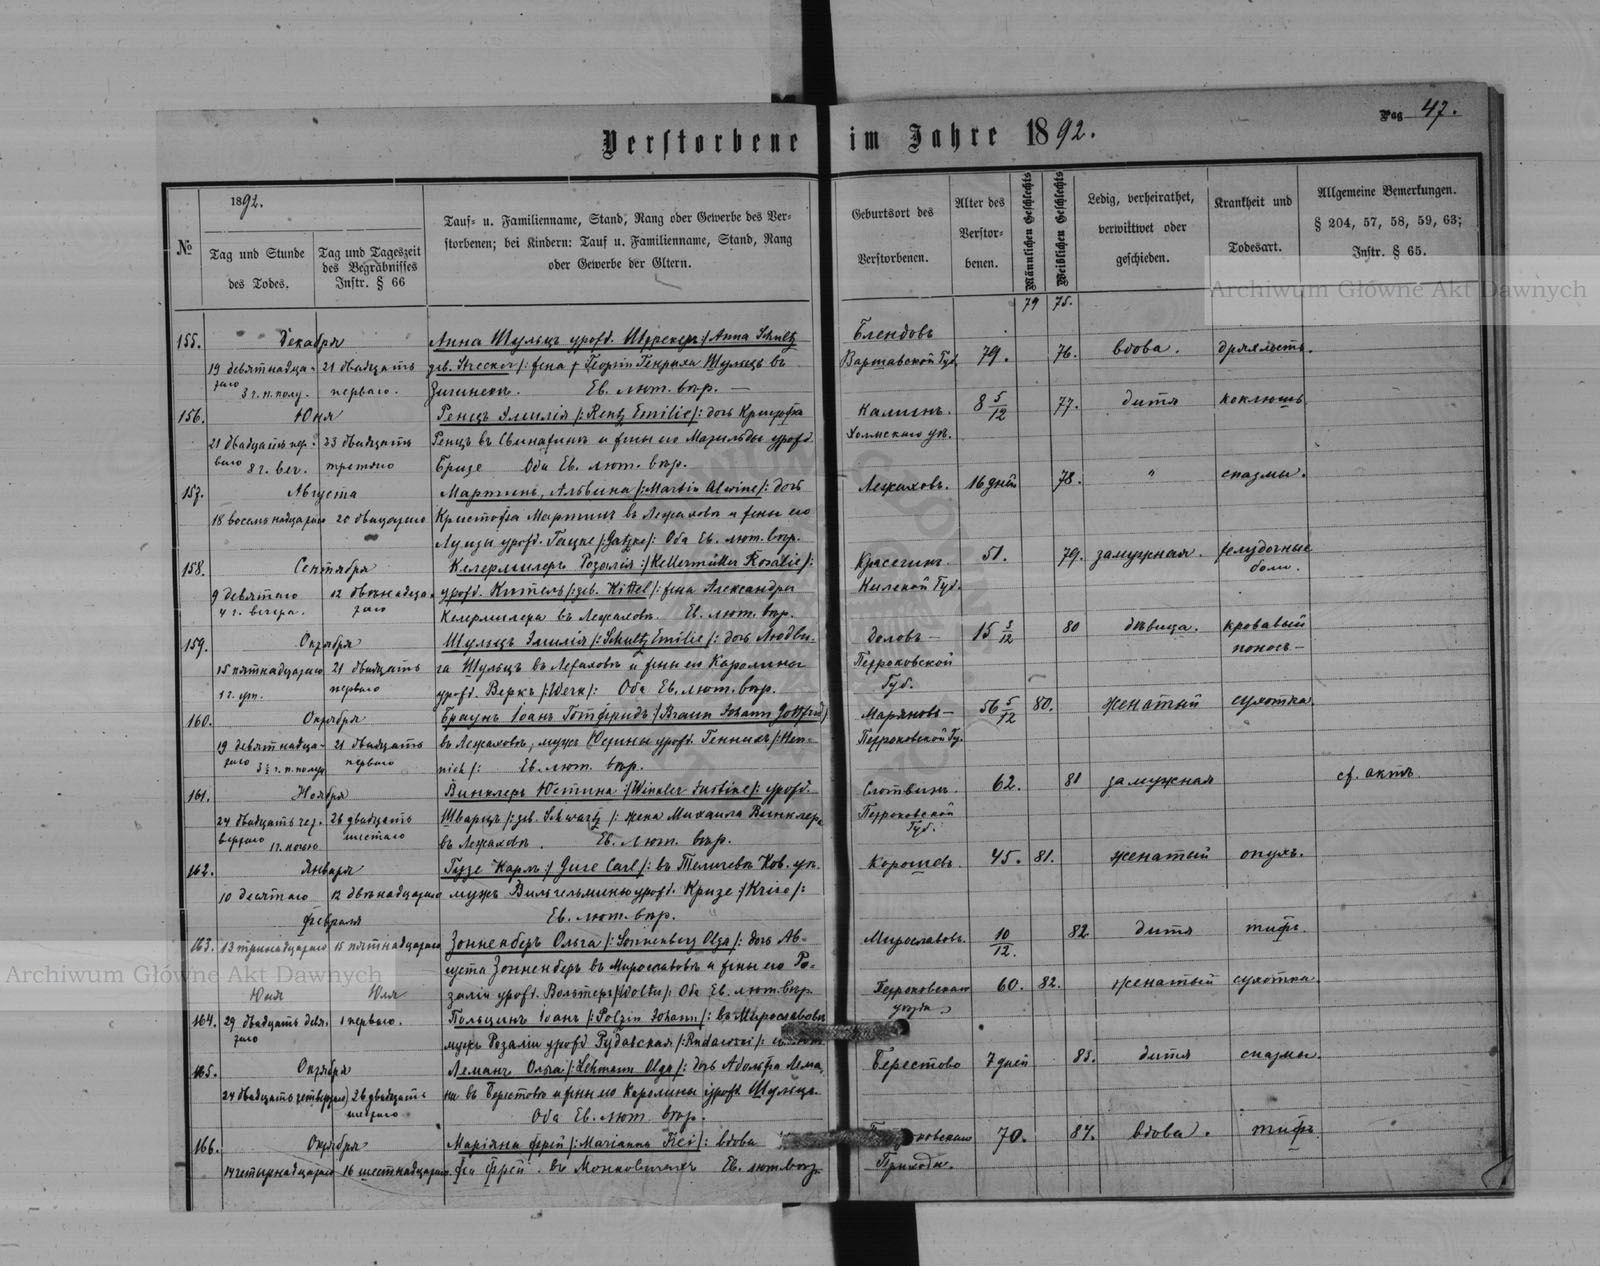 Pag 47.
Verstorbene im Jahre 1892.
№
1892.
Tag und Stunde
des Todes.
Tag und Tageszeit
des Begräbnisses
Instr. § 66
Tauf- u. Familienname, Stand, Rang oder Gewerbe des Ver-
storbenen; bei Kindern: Tauf u. Familienname, Stand, Rang
oder Gewerbe der Eltern.
Geburtsort des
Verstorbenen.
Alter des
Verstor-
benen.
Männlichen Geschlechts
Weiblichen Geschlechts
Ledig, verheirathet,
verwittwet oder
geschieden.
Krankheit und
Todesart.
Allgemeine Bemerkungen.
§ 204, 57, 58, 59, 63;
Instr. § 65.
79 75.
155. Декабря Анна Шульцъ урожд. /: Anna Schultz Блендовъ
19 девятнадца- 21 двадцать geb. Strecker /: жена † Георгія Генриха Шульцъ въ Варшавской Губ. 79. 76. вдова. дряхлость.
таго 3 ч. п. полу. перваго. Ев. лют. вѣр. —
156. Юня Ренцъ Эмилія /: Rentz Emilie /: дочь Криштофа Калинъ 8 5/12 77. дитя коклюшъ
21 двадцать пер- 23 двадцать Ренцъ въ и жены его Матильды урожд. Холмскаго уѣ.
ваго 8 ч. веч. третяго Бризе Оба Ев. лют. вѣр.
157. Августа Мартинъ, Альвина /: Martin Alwine /: дочь Лежаховъ. 16 дней 78. " спазмы.
18 восемнадцатаго 20 двацатаго Кристофа Мартинъ въ Лежаховѣ и жены его
Луизы урожд. Гацке /: Gatzke /: Оба Ев. лют. вѣр.
158. Сентября Келермилеръ Розалія /: Kellermüller Rosalie /: Красегинъ 51. 79. замужная. желудочные
9 девятаго 12 двѣнадца- урожд. Китель /: geb. Kittel /: жена Александра Губ. боли.
4 ч. вечера. таго Келермилера въ Лежаховѣ. Ев. лют. вѣр.
159. Октября Шульцъ Эмилія /: Schultz Emilie /: дочь Людви- Доловъ — 15 5/12 80 дѣвица. кровавый
15 пятнадцатаго 21 двадцать га Шульцъ въ Лежаховѣ и жены его Каролины Петроковской понось —
1 ч. ут. перваго урожд. Веркъ /: Werk /: Оба Ев. лют. вѣр. Губ.
160. Октября Браунъ Іоанъ Готфридъ /: Braun Johann Gottfried /: Маряновъ — 56 5/12 80. женатый сухотка
19 девятнадца- 21 двадцать въ Лежаховѣ, мужъ Юстины урожд. Геннихъ /: Hen- Петроковской Гу.
таго 3½ ч. п. полу перваго nich /: Ев. лют. вѣр.
161. Ноября Винклеръ Юстина /: Winkler Justine /: урожд. Слотвинъ. 62. 81 замужная cf. актъ
24 двадцать чет- 26 двадцать Шварцъ /: geb. Schwartz /: жена Михаила Винклера Петроковской
вертаго 1 ч. ночью шестаго въ Лежаховѣ. Ев. лют. вѣр. Губ.
162. Января Гузе Карлъ /: Guse Carl /: въ Ков. уѣ. Корошевъ. 45. 81. женатый опухъ.
10 десятаго 12 двѣнадцатаго мужъ Вильгельмины урожд. Кризе /: Krise /:
Февраля Ев. лют. вѣр.
163. 13 тринадцатаго 15 пятнадцатаго Зонненберъ Ольга /: Sonnenberg Olga /: дочь Ав- Мирославовъ. 10/12. 82 дитя тифъ
густа Зонненберъ въ Мирославовѣ и жены его Ро-
Юня Юля заліи урожд. Вольтеръ /: Wolter /: Оба Ев. лют. вѣр. Петроковская 60. 82. женатый сухотка.
164. 29 двадцать девя- 1 перваго. Польцинъ Іоанъ /: Polzin Johann /: въ Мирославовѣ
таго мужъ Розаліи урожд. Рудавская /: Rudawski /:
165. Октября Леманъ Ольга /: Lehmann Olga /: дочь Адольфа Лема- Берестово 7 дней 83. дитя спазмы.
24 двадцать четвертаго 26 двадцать на въ Берестовѣ и жены его Каролины урожд. Шульцъ.
шестаго Оба Ев. лют. вѣр.
166. Октября Маріяна Фрей /: Marianna Frei /: вдова 70. 84. вдова. тифъ
14 четырнадцатаго 16 шестнадцатаго Фрей. въ Ев. лют. вѣр. Приходъ.
Archiwum Główne Akt Dawnych
Archiwum Główne Akt Dawnych